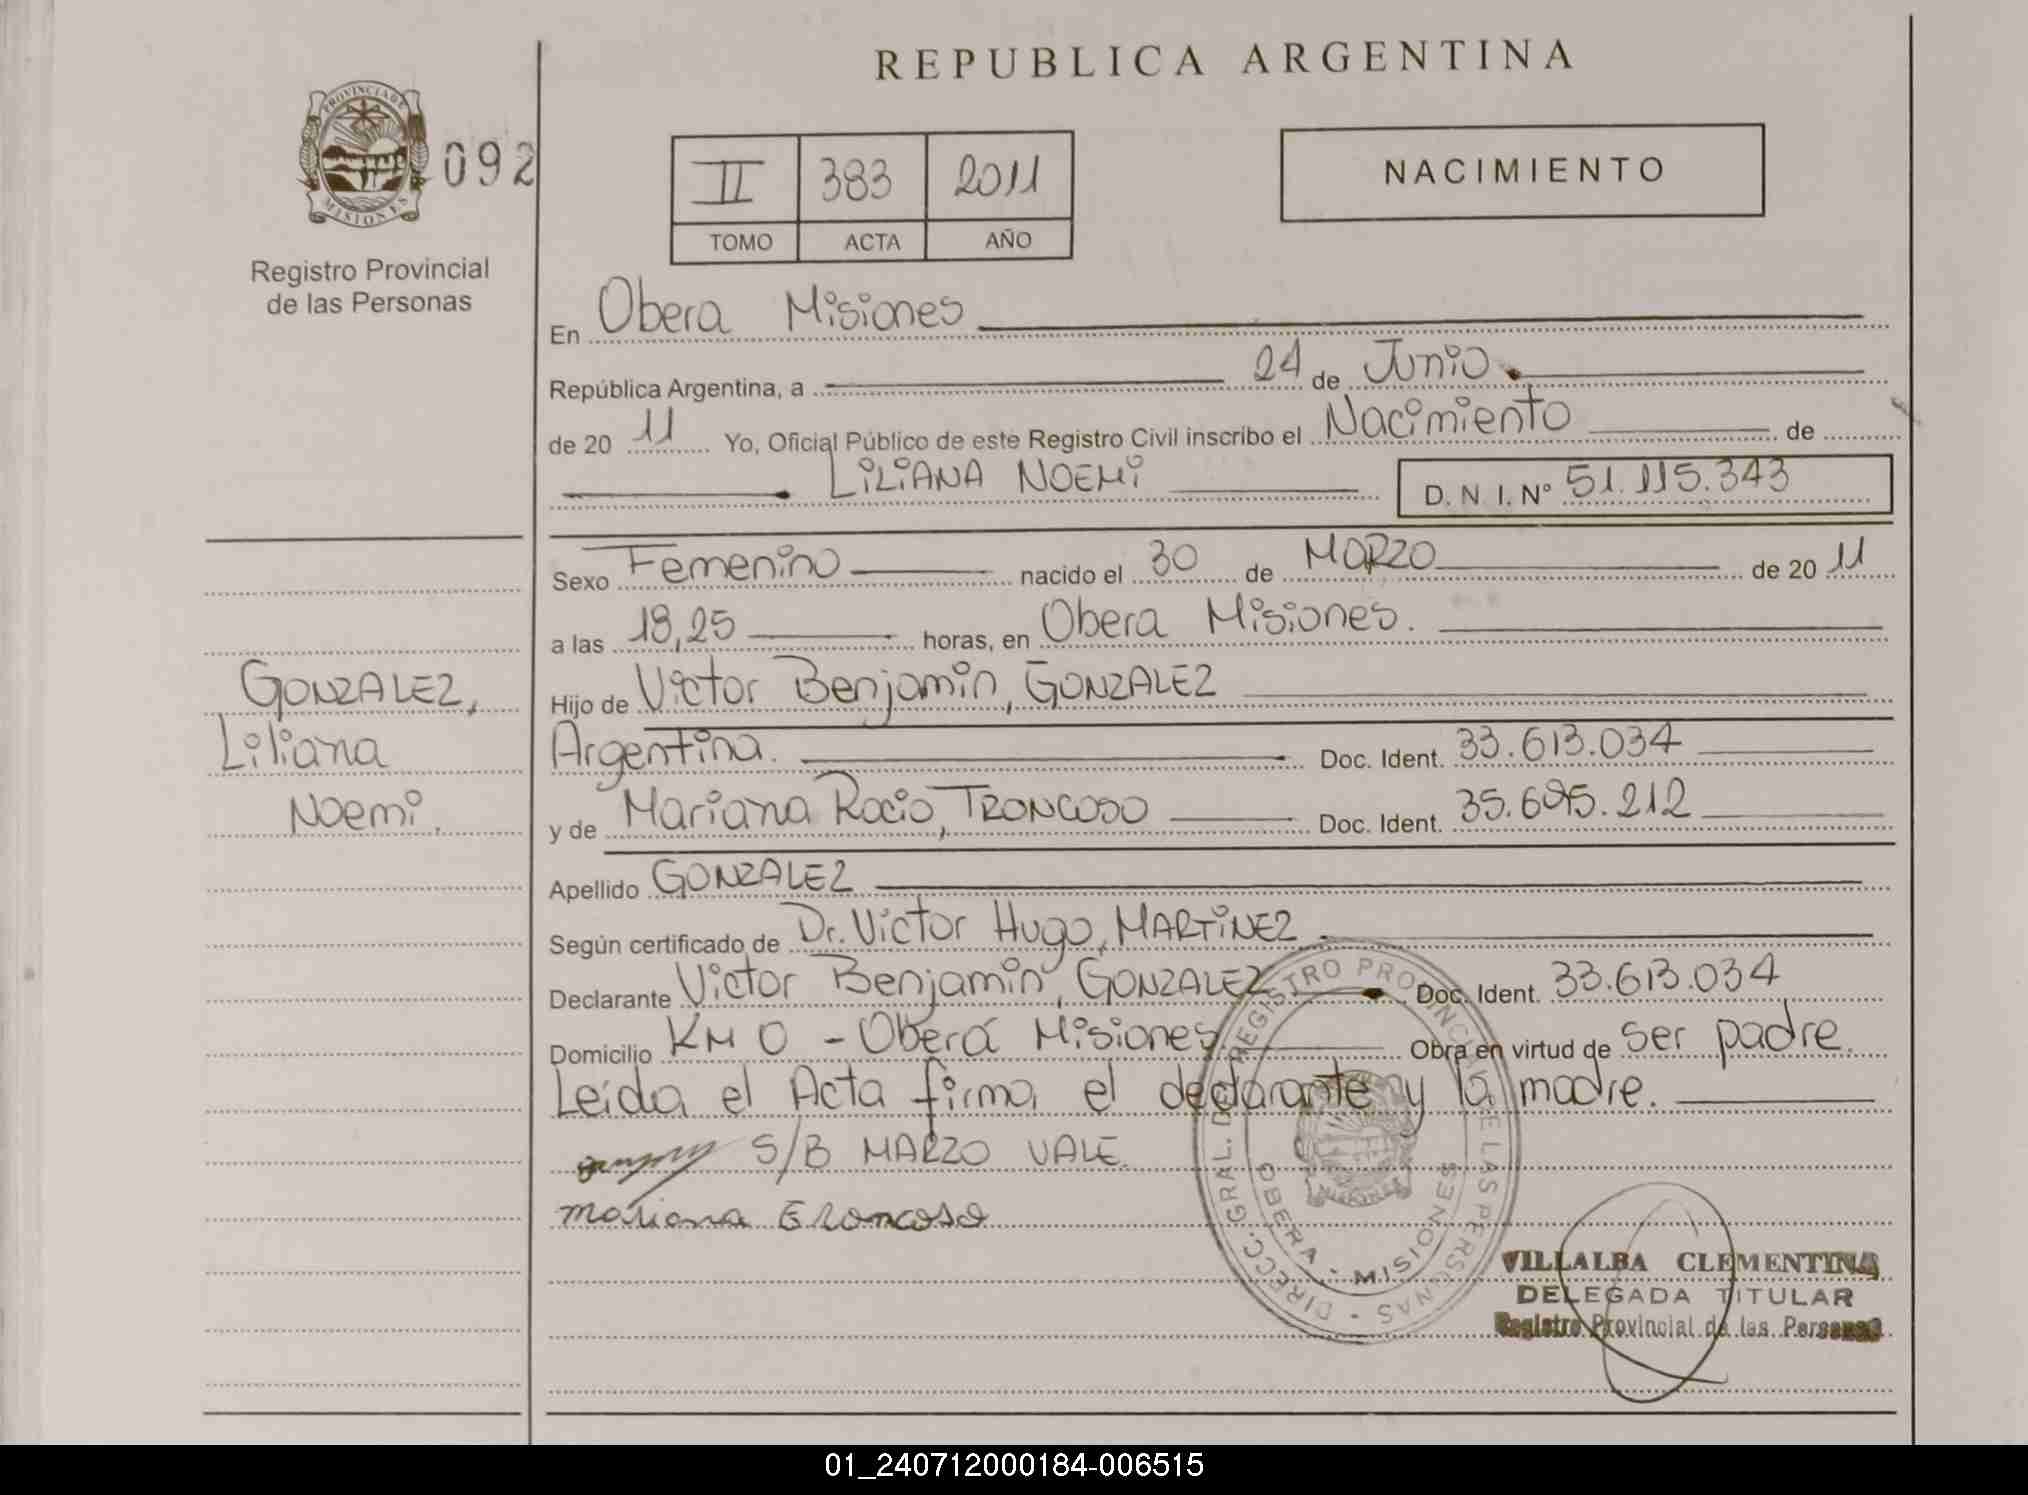 REPUBLICA ARGENTINA
PROVINCIA DE
MISIONES
092
Registro Provincial
de las Personas
II 383 2011
TOMO ACTA AÑO
NACIMIENTO
En Obera Misiones
República Argentina, a 24 de Junio
de 20 11 Yo, Oficial Público de este Registro Civil inscribo el Nacimiento de
LILIANA NOEMI D. N. I. Nº 51.115.343
Sexo Femenino nacido el 30 de MARZO de 20 11
a las 18,25 horas, en Obera Misiones.
Hijo de Victor Benjamin, GONZALEZ
Argentina. Doc. Ident. 33.613.034
y de Mariana Rocio, TRONCOSO Doc. Ident. 35.695.212
Apellido GONZALEZ
Según certificado de Dr. Victor Hugo, MARTINEZ
Declarante Victor Benjamin, GONZALEZ Doc. Ident. 33.613.034
Domicilio KM 0 - Oberá Misiones Obra en virtud de ser padre.
Leida el Acta firma el declarante y la madre.
S/B MARZO VALE.
Mariana Troncoso
GONZALEZ,
Liliana
Noemi.
DIRECC. GRAL. DE REGISTRO PROVINCIAL DE LAS PERSONAS
OBERA - MISIONES
VILLALBA CLEMENTINA
DELEGADA TITULAR
Registro Provincial de las Personas
01_240712000184-006515